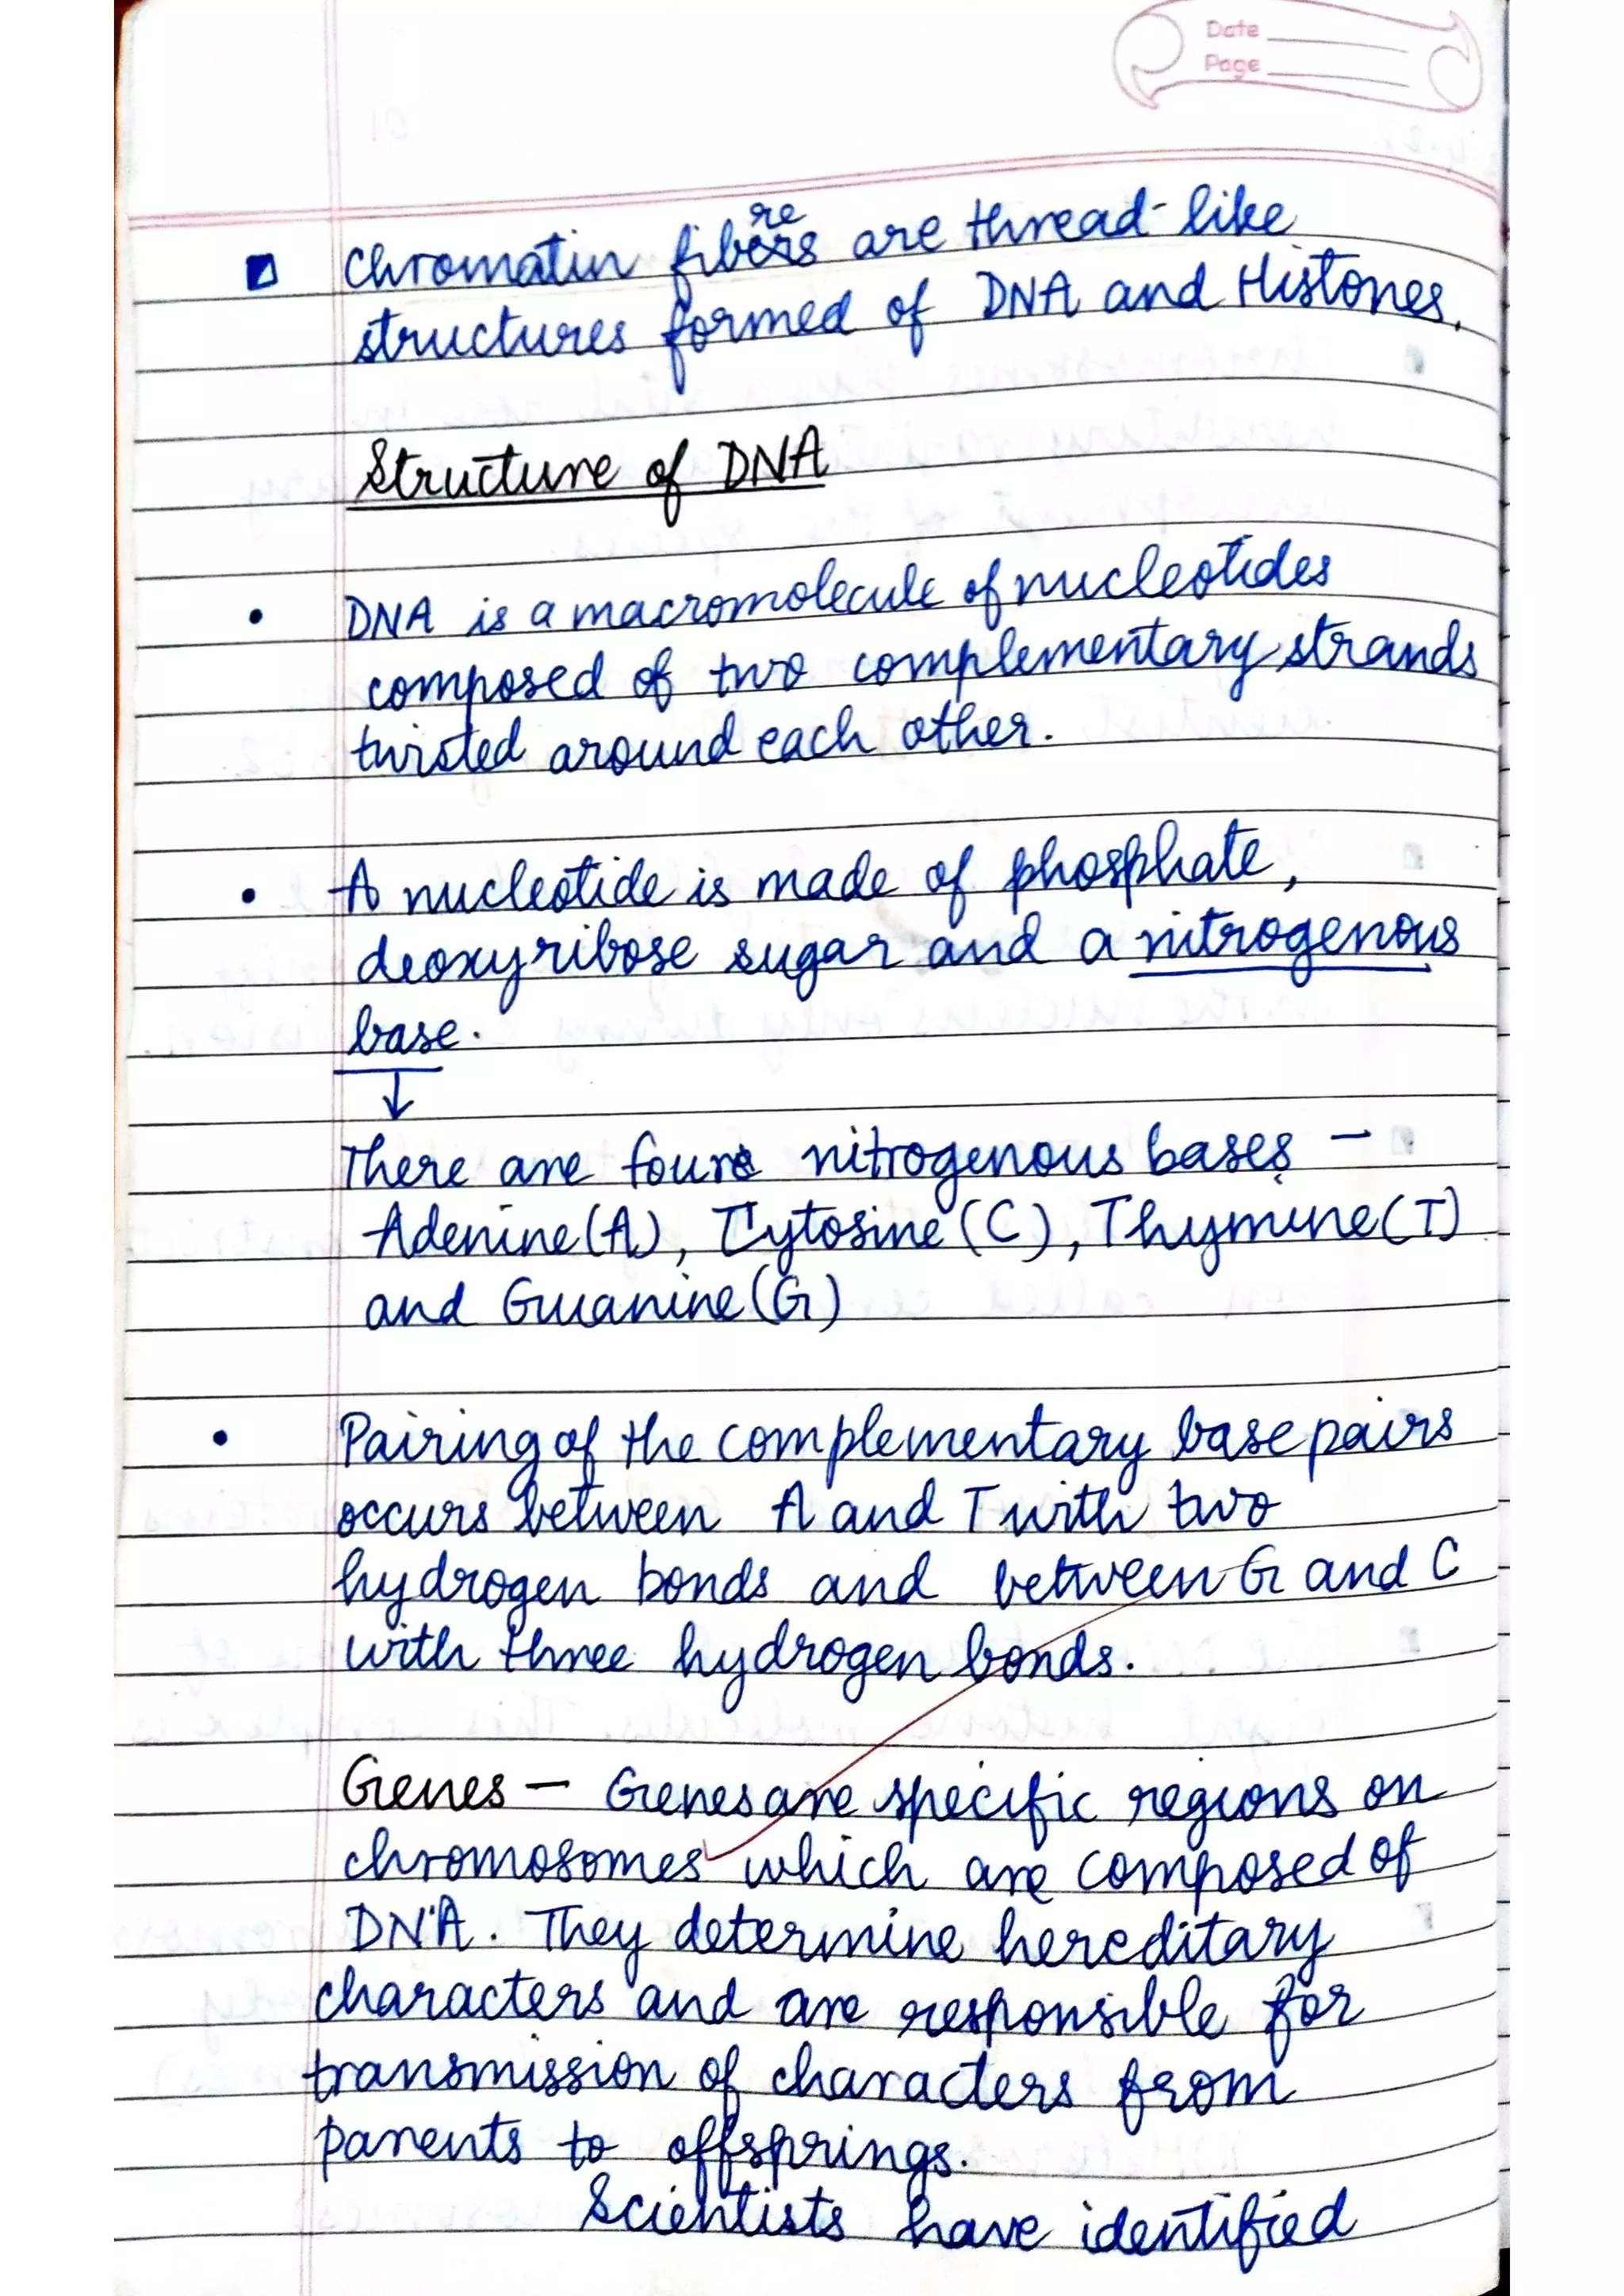 Date
Page
Chromatin fibres are thread-like
structures formed of DNA and Histones.
Structure of DNA
• DNA is a macromolecule of nucleotides
composed of two complementary strands
twisted around each other.
• A nucleotide is made of phosphate,
deoxyribose sugar and a nitrogenous
base.
↓
There are four nitrogenous bases –
Adenine(A), Cytosine (C), Thymine(T)
and Guanine(G)
• Pairing of the complementary base pairs
occurs between A and T with two
hydrogen bonds and between G and C
with three hydrogen bonds.
Genes – Genes are specific regions on
chromosomes which are composed of
DNA. They determine hereditary
characters and are responsible for
transmission of characters from
parents to offsprings.
Scientists have identified